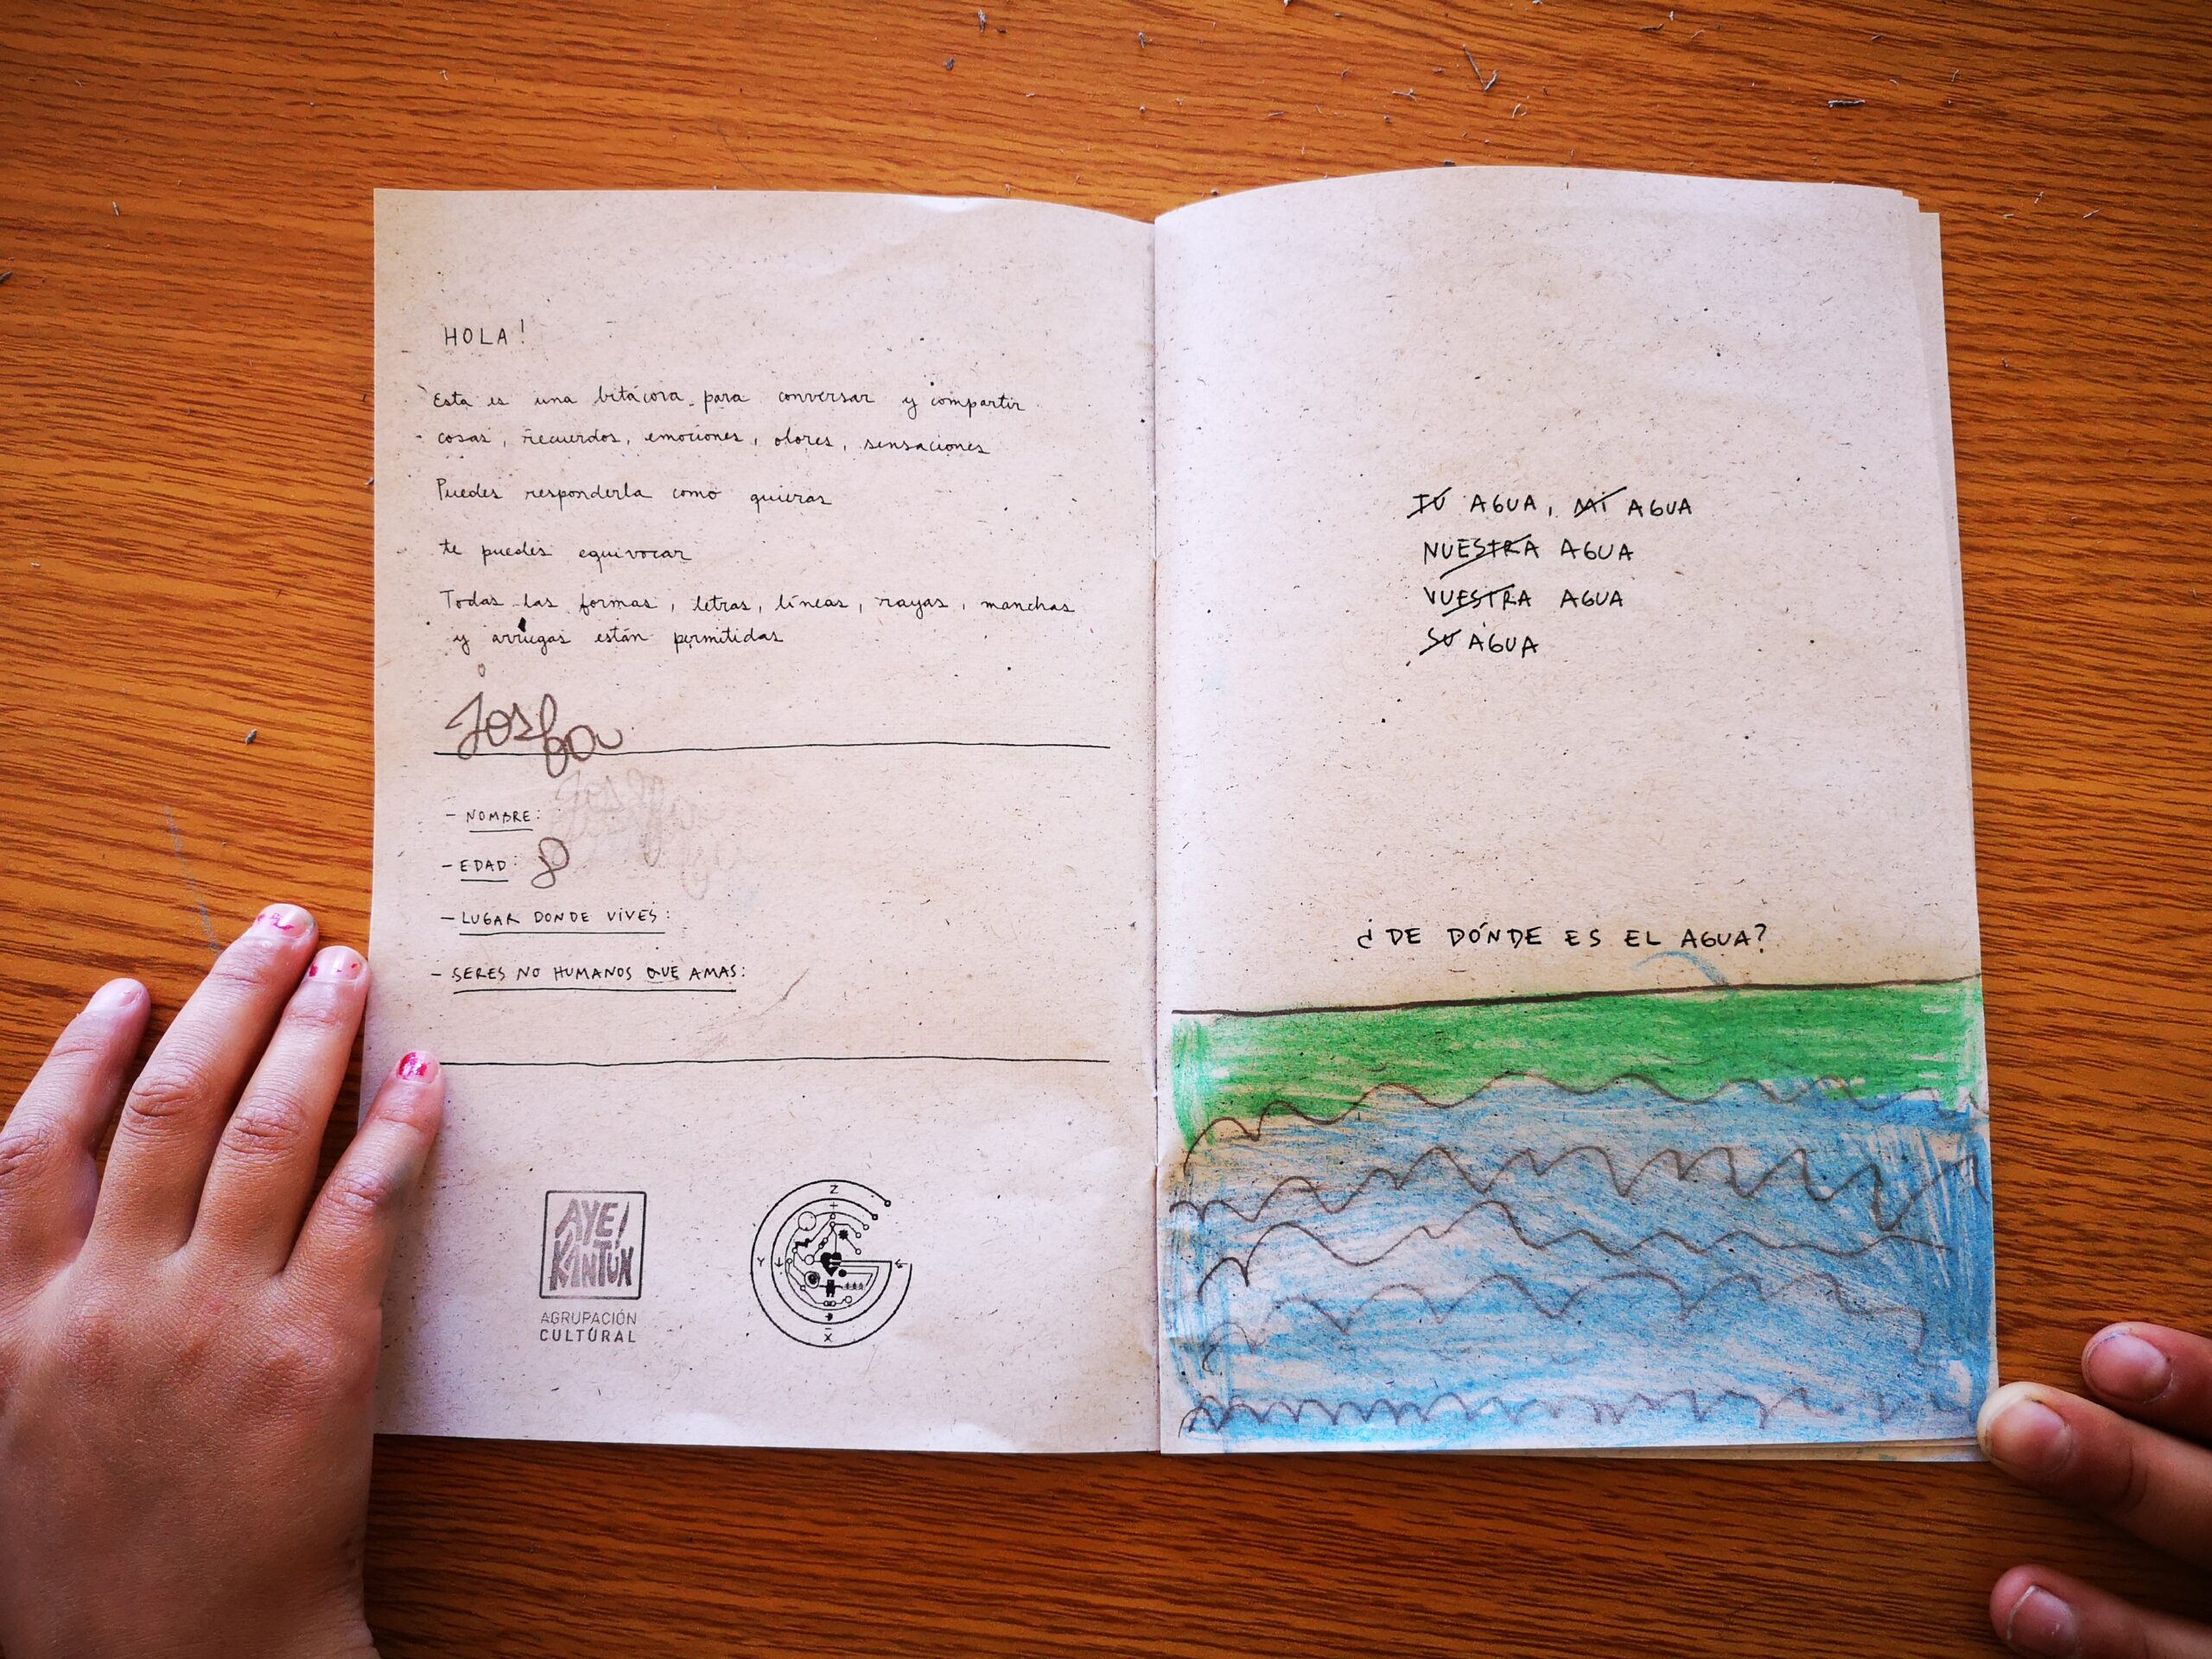 HOLA!
Esta es una bitácora para conversar y compartir
cosas, recuerdos, emociones, olores, sensaciones
Puedes responderla como quieras
te puedes equivocar
Todas las formas, letras, líneas, rayas, manchas
y arrugas están permitidas
Josfa
- NOMBRE:
- EDAD: 8
- LUGAR DONDE VIVES:
- SERES NO HUMANOS QUE AMAS:
AYE/
KANTÜN
AGRUPACIÓN
CULTURAL
Z
Y
X
TU AGUA, MI AGUA
NUESTRA AGUA
VUESTRA AGUA
SU AGUA
¿DE DÓNDE ES EL AGUA?